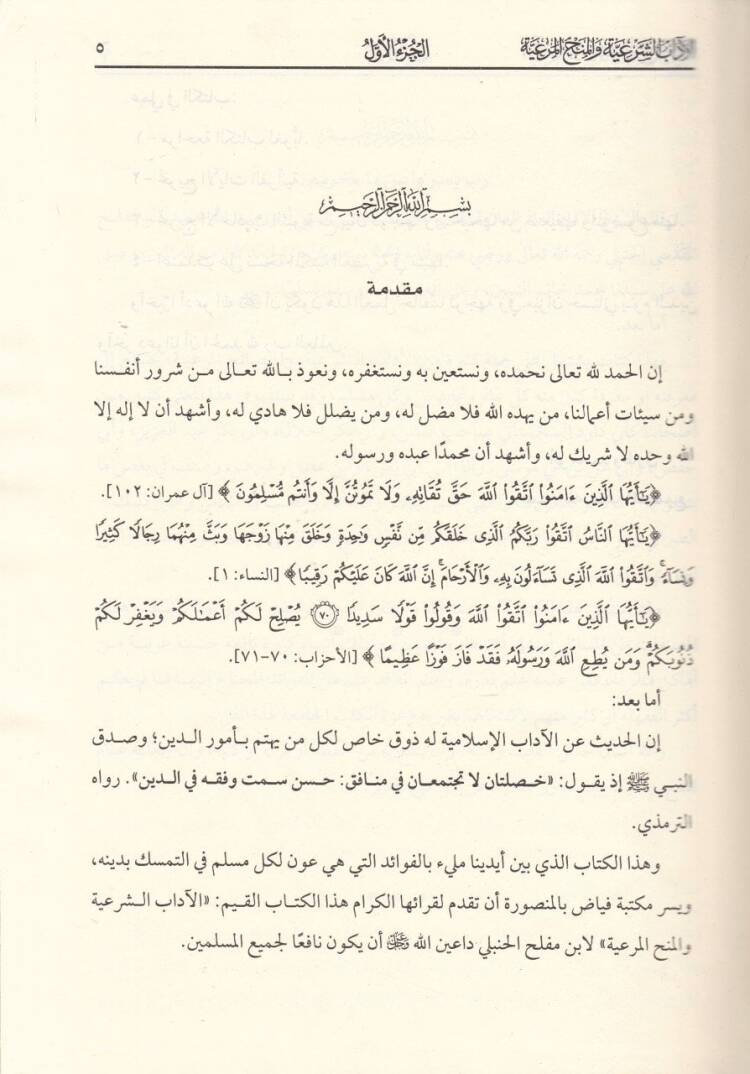 الآداب الشرعية والمنح المرعية الجزء الأول ٥
بسم الله الرحمن الرحيم
مقدمة
إن الحمد لله تعالى نحمده، ونستعين به ونستغفره، ونعوذ بالله تعالى من شرور أنفسنا
ومن سيئات أعمالنا، من يهده الله فلا مضل له، ومن يضلل فلا هادي له، وأشهد أن لا إله إلا
الله وحده لا شريك له، وأشهد أن محمدًا عبده ورسوله.
﴿يَـٰٓأَيُّهَا ٱلَّذِينَ ءَامَنُوا۟ ٱتَّقُوا۟ ٱللَّهَ حَقَّ تُقَاتِهِۦ وَلَا تَمُوتُنَّ إِلَّا وَأَنتُم مُّسْلِمُونَ﴾ [آل عمران: ١٠٢].
﴿يَـٰٓأَيُّهَا ٱلنَّاسُ ٱتَّقُوا۟ رَبَّكُمُ ٱلَّذِى خَلَقَكُم مِّن نَّفْسٍ وَٰحِدَةٍ وَخَلَقَ مِنْهَا زَوْجَهَا وَبَثَّ مِنْهُمَا رِجَالًا كَثِيرًا
وَنِسَآءً ۚ وَٱتَّقُوا۟ ٱللَّهَ ٱلَّذِى تَسَآءَلُونَ بِهِۦ وَٱلْأَرْحَامَ ۚ إِنَّ ٱللَّهَ كَانَ عَلَيْكُمْ رَقِيبًا﴾ [النساء: ١].
﴿يَـٰٓأَيُّهَا ٱلَّذِينَ ءَامَنُوا۟ ٱتَّقُوا۟ ٱللَّهَ وَقُولُوا۟ قَوْلًا سَدِيدًا ﴿٧٠﴾ يُصْلِحْ لَكُمْ أَعْمَـٰلَكُمْ وَيَغْفِرْ لَكُمْ
ذُنُوبَكُمْ ۗ وَمَن يُطِعِ ٱللَّهَ وَرَسُولَهُۥ فَقَدْ فَازَ فَوْزًا عَظِيمًا﴾ [الأحزاب: ٧٠-٧١].
أما بعد:
إن الحديث عن الآداب الإسلامية له ذوق خاص لكل من يهتم بأمور الدين؛ وصدق
النبي ﷺ إذ يقول: «خصلتان لا تجتمعان في منافق: حسن سمت وفقه في الدين». رواه
الترمذي.
وهذا الكتاب الذي بين أيدينا مليء بالفوائد التي هي عون لكل مسلم في التمسك بدينه،
ويسر مكتبة فياض بالمنصورة أن تقدم لقرائها الكرام هذا الكتاب القيم: «الآداب الشرعية
والمنح المرعية» لابن مفلح الحنبلي داعين الله ﷿ أن يكون نافعًا لجميع المسلمين.